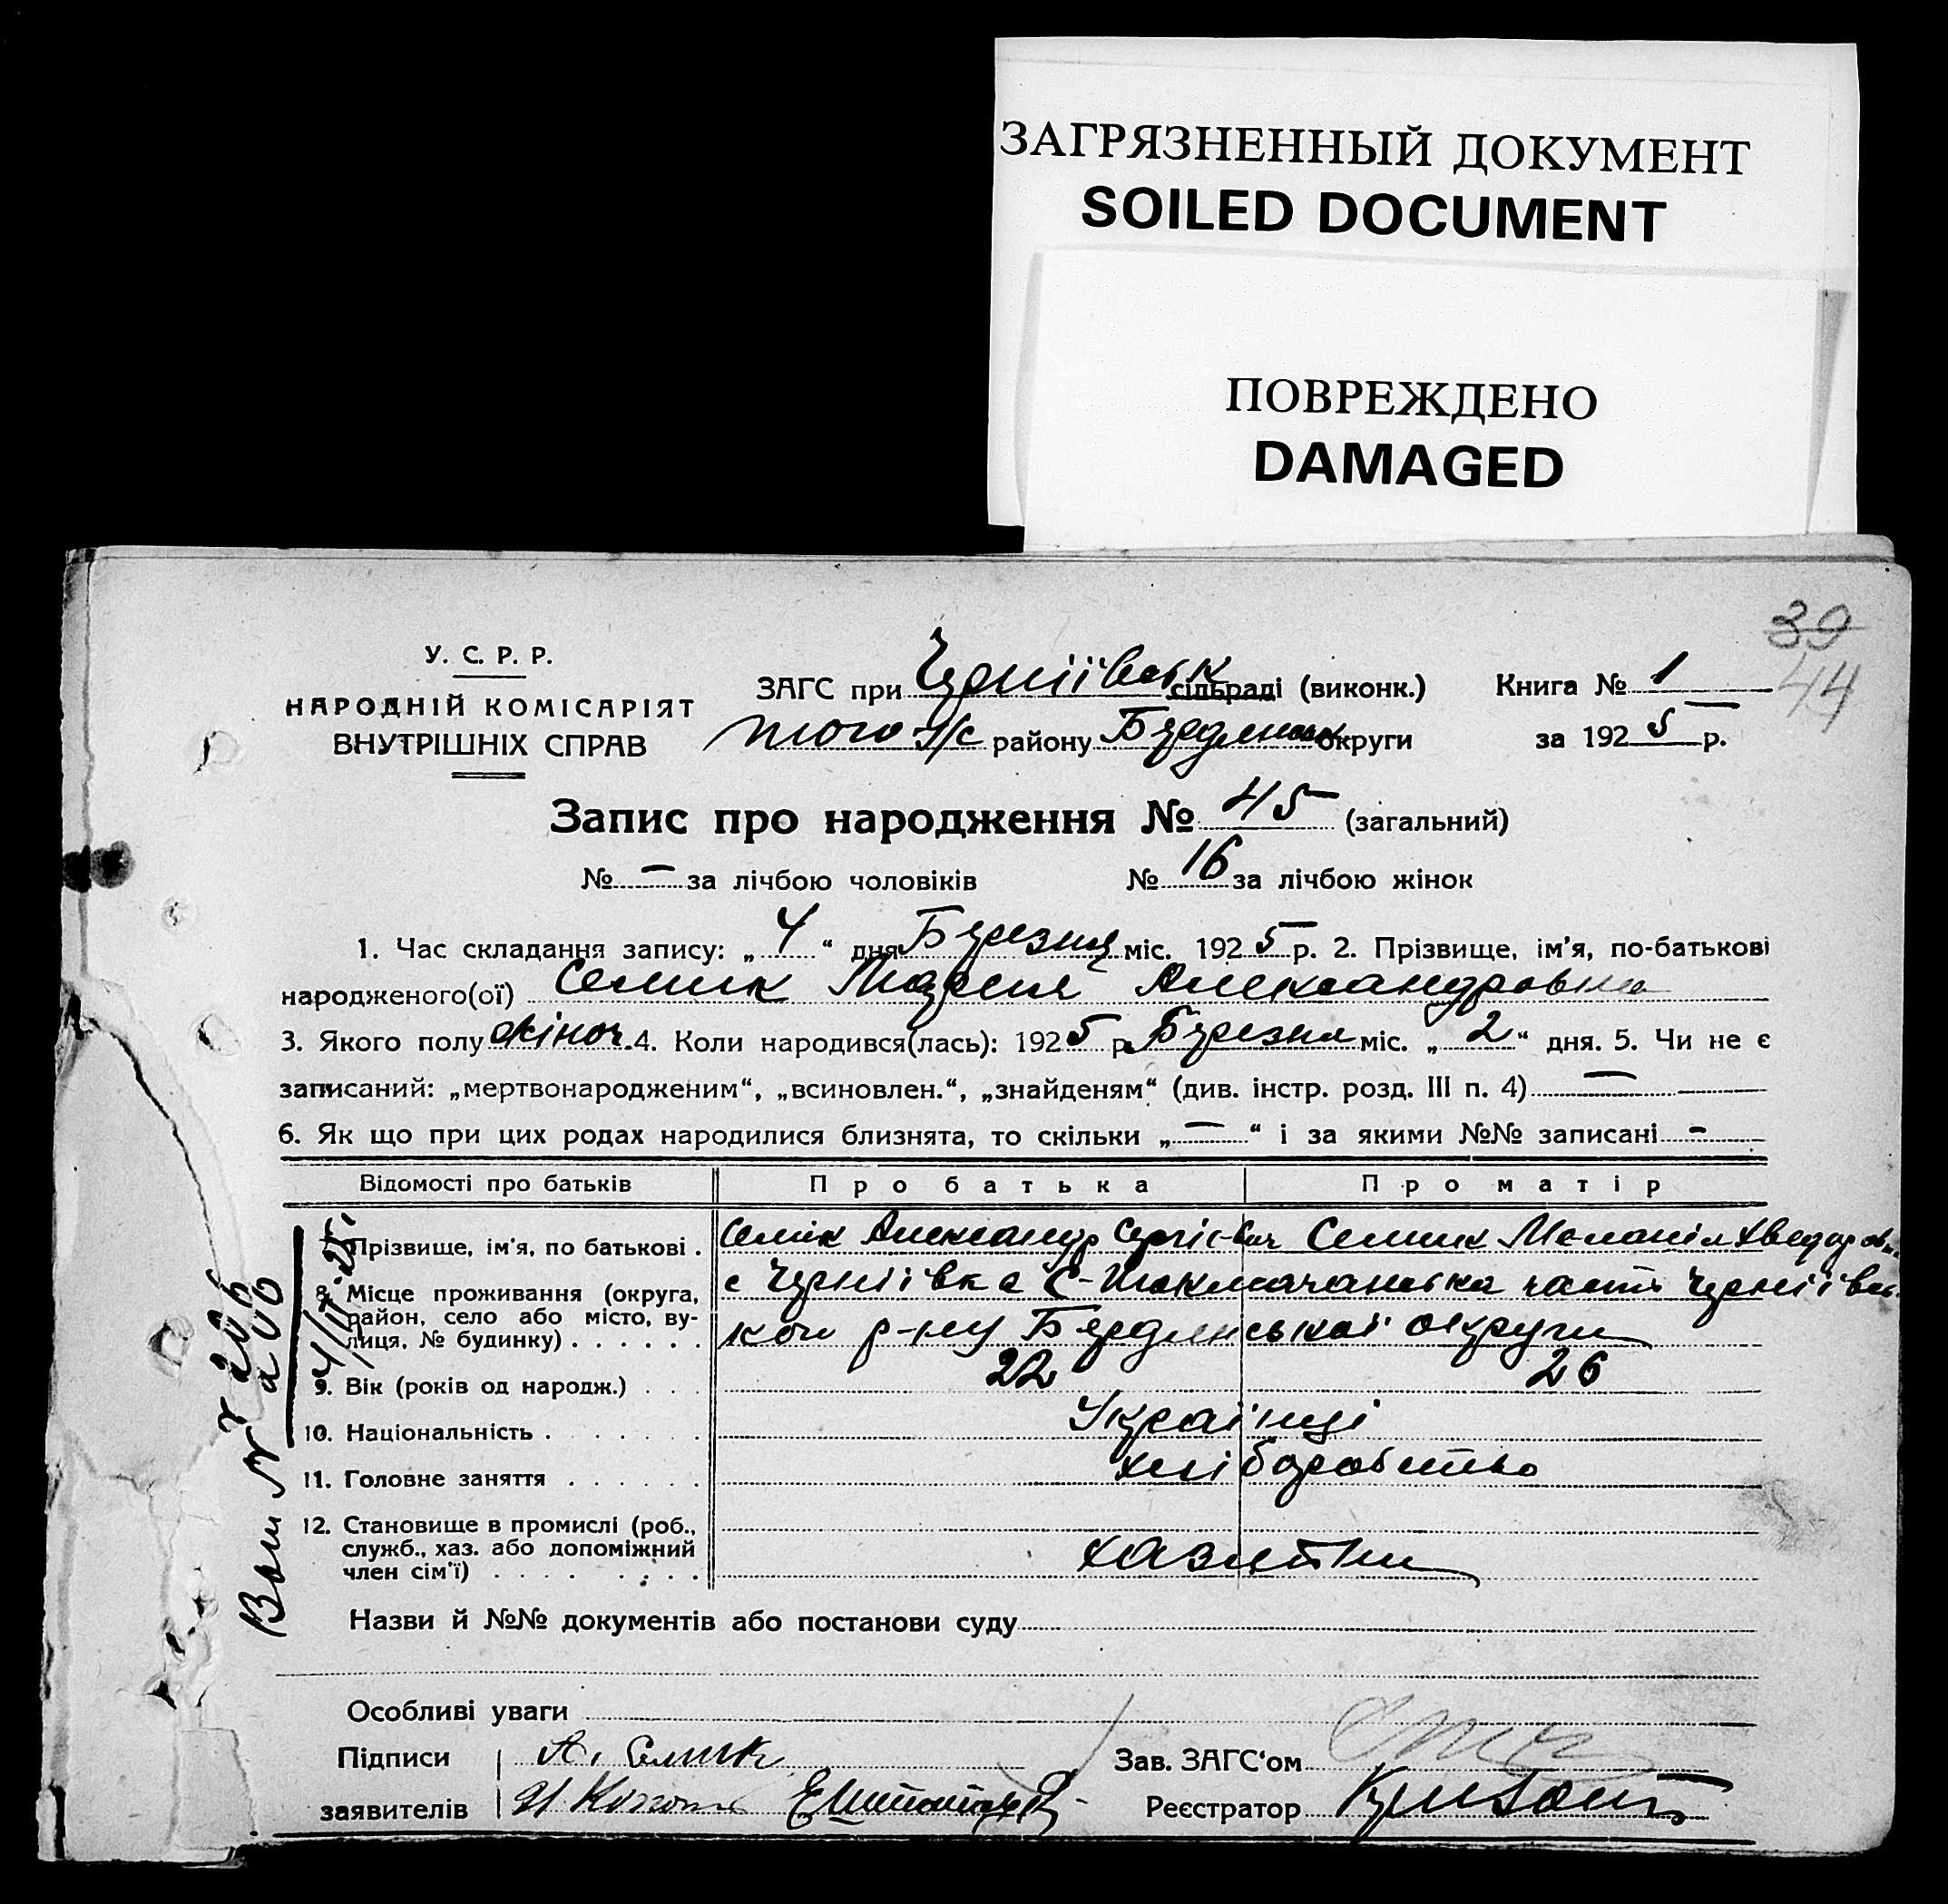 ЗАГРЯЗНЕННЫЙ ДОКУМЕНТ
SOILED DOCUMENT
ПОВРЕЖДЕНО
DAMAGED
39
44
У. С. Р. Р.
НАРОДНІЙ КОМІСАРІЯТ
ВНУТРІШНІХ СПРАВ
ЗАГС при Черніївськ сільраді (виконк.) Книга № 1
того ж/с району Бердянськ округи за 1925 р.
Запис про народження № 45 (загальний)
№ – за лічбою чоловіків № 16 за лічбою жінок
1. Час складання запису: „4“ дня Березня міс. 1925 р. 2. Прізвище, ім'я, по-батькові
народженого(ої) Семик Мария Александровна
3. Якого полу жіноч. 4. Коли народився(лась): 1925 р. Березня міс. „2“ дня. 5. Чи не є
записаний: „мертвонародженим“, „всиновлен.“, „знайденям“ (див. інстр. розд. III п. 4) –
6. Як що при цих родах народилися близнята, то скільки „–“ і за якими №№ записані –
Відомості про батьків Про батька Про матір
7. Прізвище, ім'я, по батькові . Семік Александр Сергієвич Семик Меланія Хведоровн
8. Місце проживання (округа, район, село або місто, вулиця, № будинку) с Черніївка С-Токмачанська часть Черніївсь
кои р-ну Бердянської округи
9. Вік (років од народж.) 22 26
10. Національність Українці
11. Головне заняття хліборобство
12. Становище в промислі (роб.,
служб., хаз. або допоміжний
член сім'ї) хазяїни
Назви й №№ документів або постанови суду
Особливі уваги
Підписи А. Семик Зав. ЗАГС'ом
заявителів Реєстратор